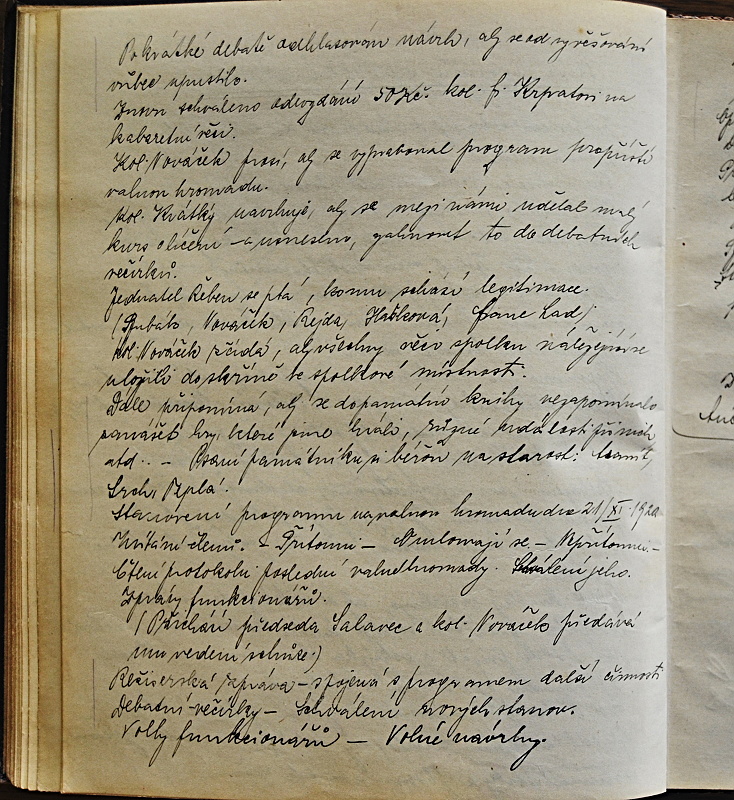 Po krátké debatě odhlasován návrh, aby se od vyřešování
vůbec upustilo.
Znovu schváleno odevzdání 50 Kč. kol. fi. Krpatovi na
kabaretní věci.
Kol. Nováček prosí, aby se vypracoval program pro příští
valnou hromadu.
Kol. Krátký navrhuje, aby se mezi námi udělal malý
kurs oličení – a usneseno, zahrnout to do debatních
večírků.
Jednatel Řeben se ptá, komu schází legitimace.
(Nováček, Rejda, Hašková, Lad)
Kol. Nováček žádá, aby všechny věci spolku náležející se
uložili do skříně ve spolkové místnosti.
Dále připomíná, aby se do památní knihy nezapomínalo
zanášet hry, které jsme hráli, různé události při nich
atd.. – Psaní památníku si béřou na starost:
Srch,
Stanovení programu na valnou hromadu dne 21/XI. 1920
Uvítání členů. – Přítomni – Omlouvají se – Nepřítomni. –
Čtení protokolu poslední valné hromady. Schválení jeho.
Zprávy funkcionářů.
(Přichází předseda Salavec a kol. Nováček předává
mu vedení schůze.)
Režiserská zpráva – spojená s programem další činnosti
Debatní večírky – Schválení nových stanov.
Volby funkcionářů – Volné návrhy.